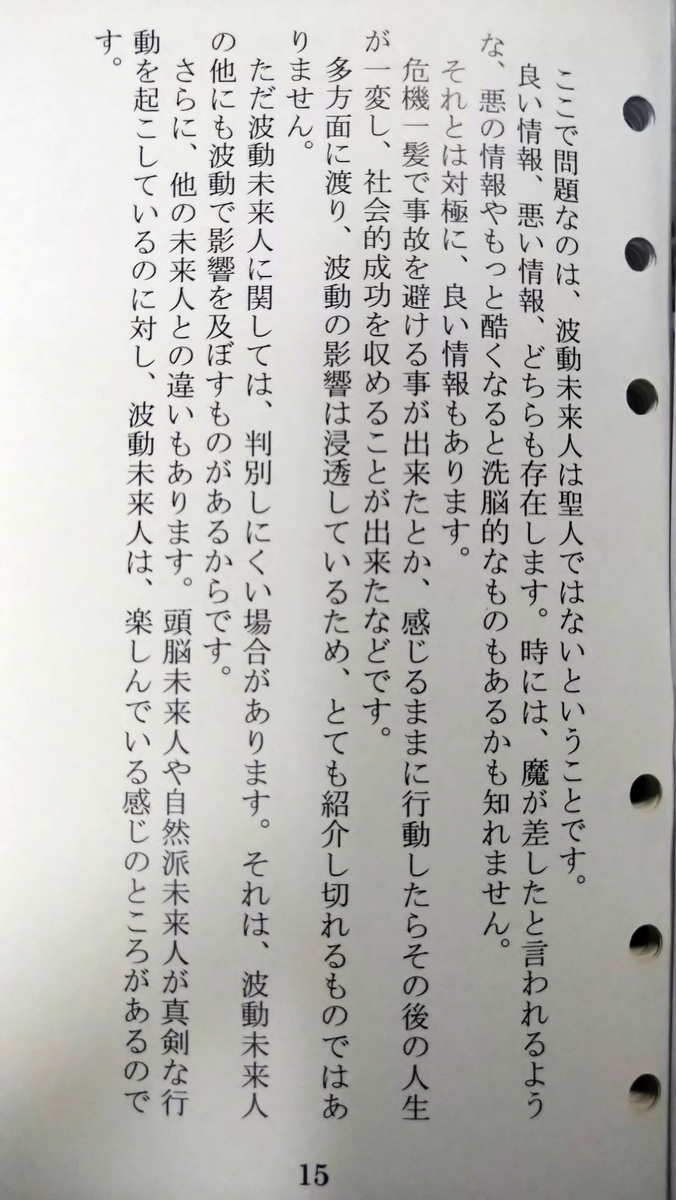 ここで問題なのは、波動未来人は聖人ではないということです。
良い情報、悪い情報、どちらも存在します。時には、魔が差したと言われるよう
な、悪の情報やもっと酷くなると洗脳的なものもあるかも知れません。
それとは対極に、良い情報もあります。
危機一髪で事故を避ける事が出来たとか、感じるままに行動したらその後の人生
が一変し、社会的成功を収めることが出来たなどです。
多方面に渡り、波動の影響は浸透しているため、とても紹介し切れるものではあ
りません。
ただ波動未来人に関しては、判別しにくい場合があります。それは、波動未来人
の他にも波動で影響を及ぼすものがあるからです。
さらに、他の未来人との違いもあります。頭脳未来人や自然派未来人が真剣な行
動を起こしているのに対し、波動未来人は、楽しんでいる感じのところがあるので
す。
15